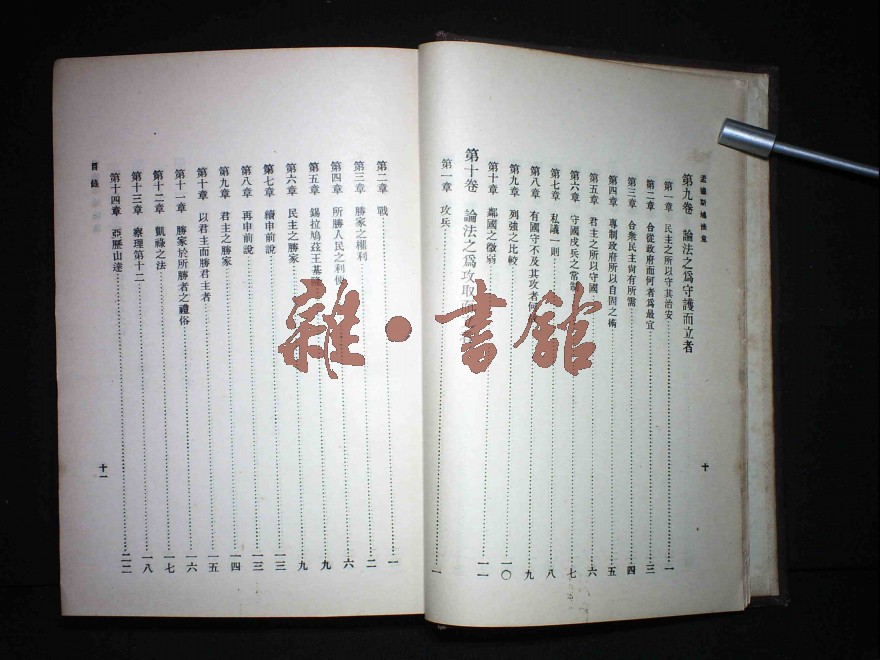 孟德斯鳩法意
第九卷 論法之為守護而立者
第一章 民主之所以守其治安 一
第二章 合從政府而何者為最宜 三
第三章 合衆民主尚有所需 四
第四章 專制政府所以自固之術 五
第五章 君主之所以守國 六
第六章 守國戍兵之常制 七
第七章 私議一則 八
第八章 有國守不及其攻者何 九
第九章 列強之比較 一〇
第十章 鄰國之微弱 一一
第十卷 論法之為攻取
第一章 攻兵 一
十
第二章 戰 一
第三章 勝家之權利 二
第四章 所勝人民之利便 六
第五章 錫拉鳩茲王基隆 九
第六章 民主之勝家 九
第七章 續申前說 一三
第八章 再申前說 一三
第九章 君主之勝家 一四
第十章 以君主而勝君主者 一五
第十一章 勝家於所勝者之禮俗 一六
第十二章 凱祿之法 一七
第十三章 察理第十二 一八
第十四章 亞歷山達 二二
目錄
十一
雜·書館